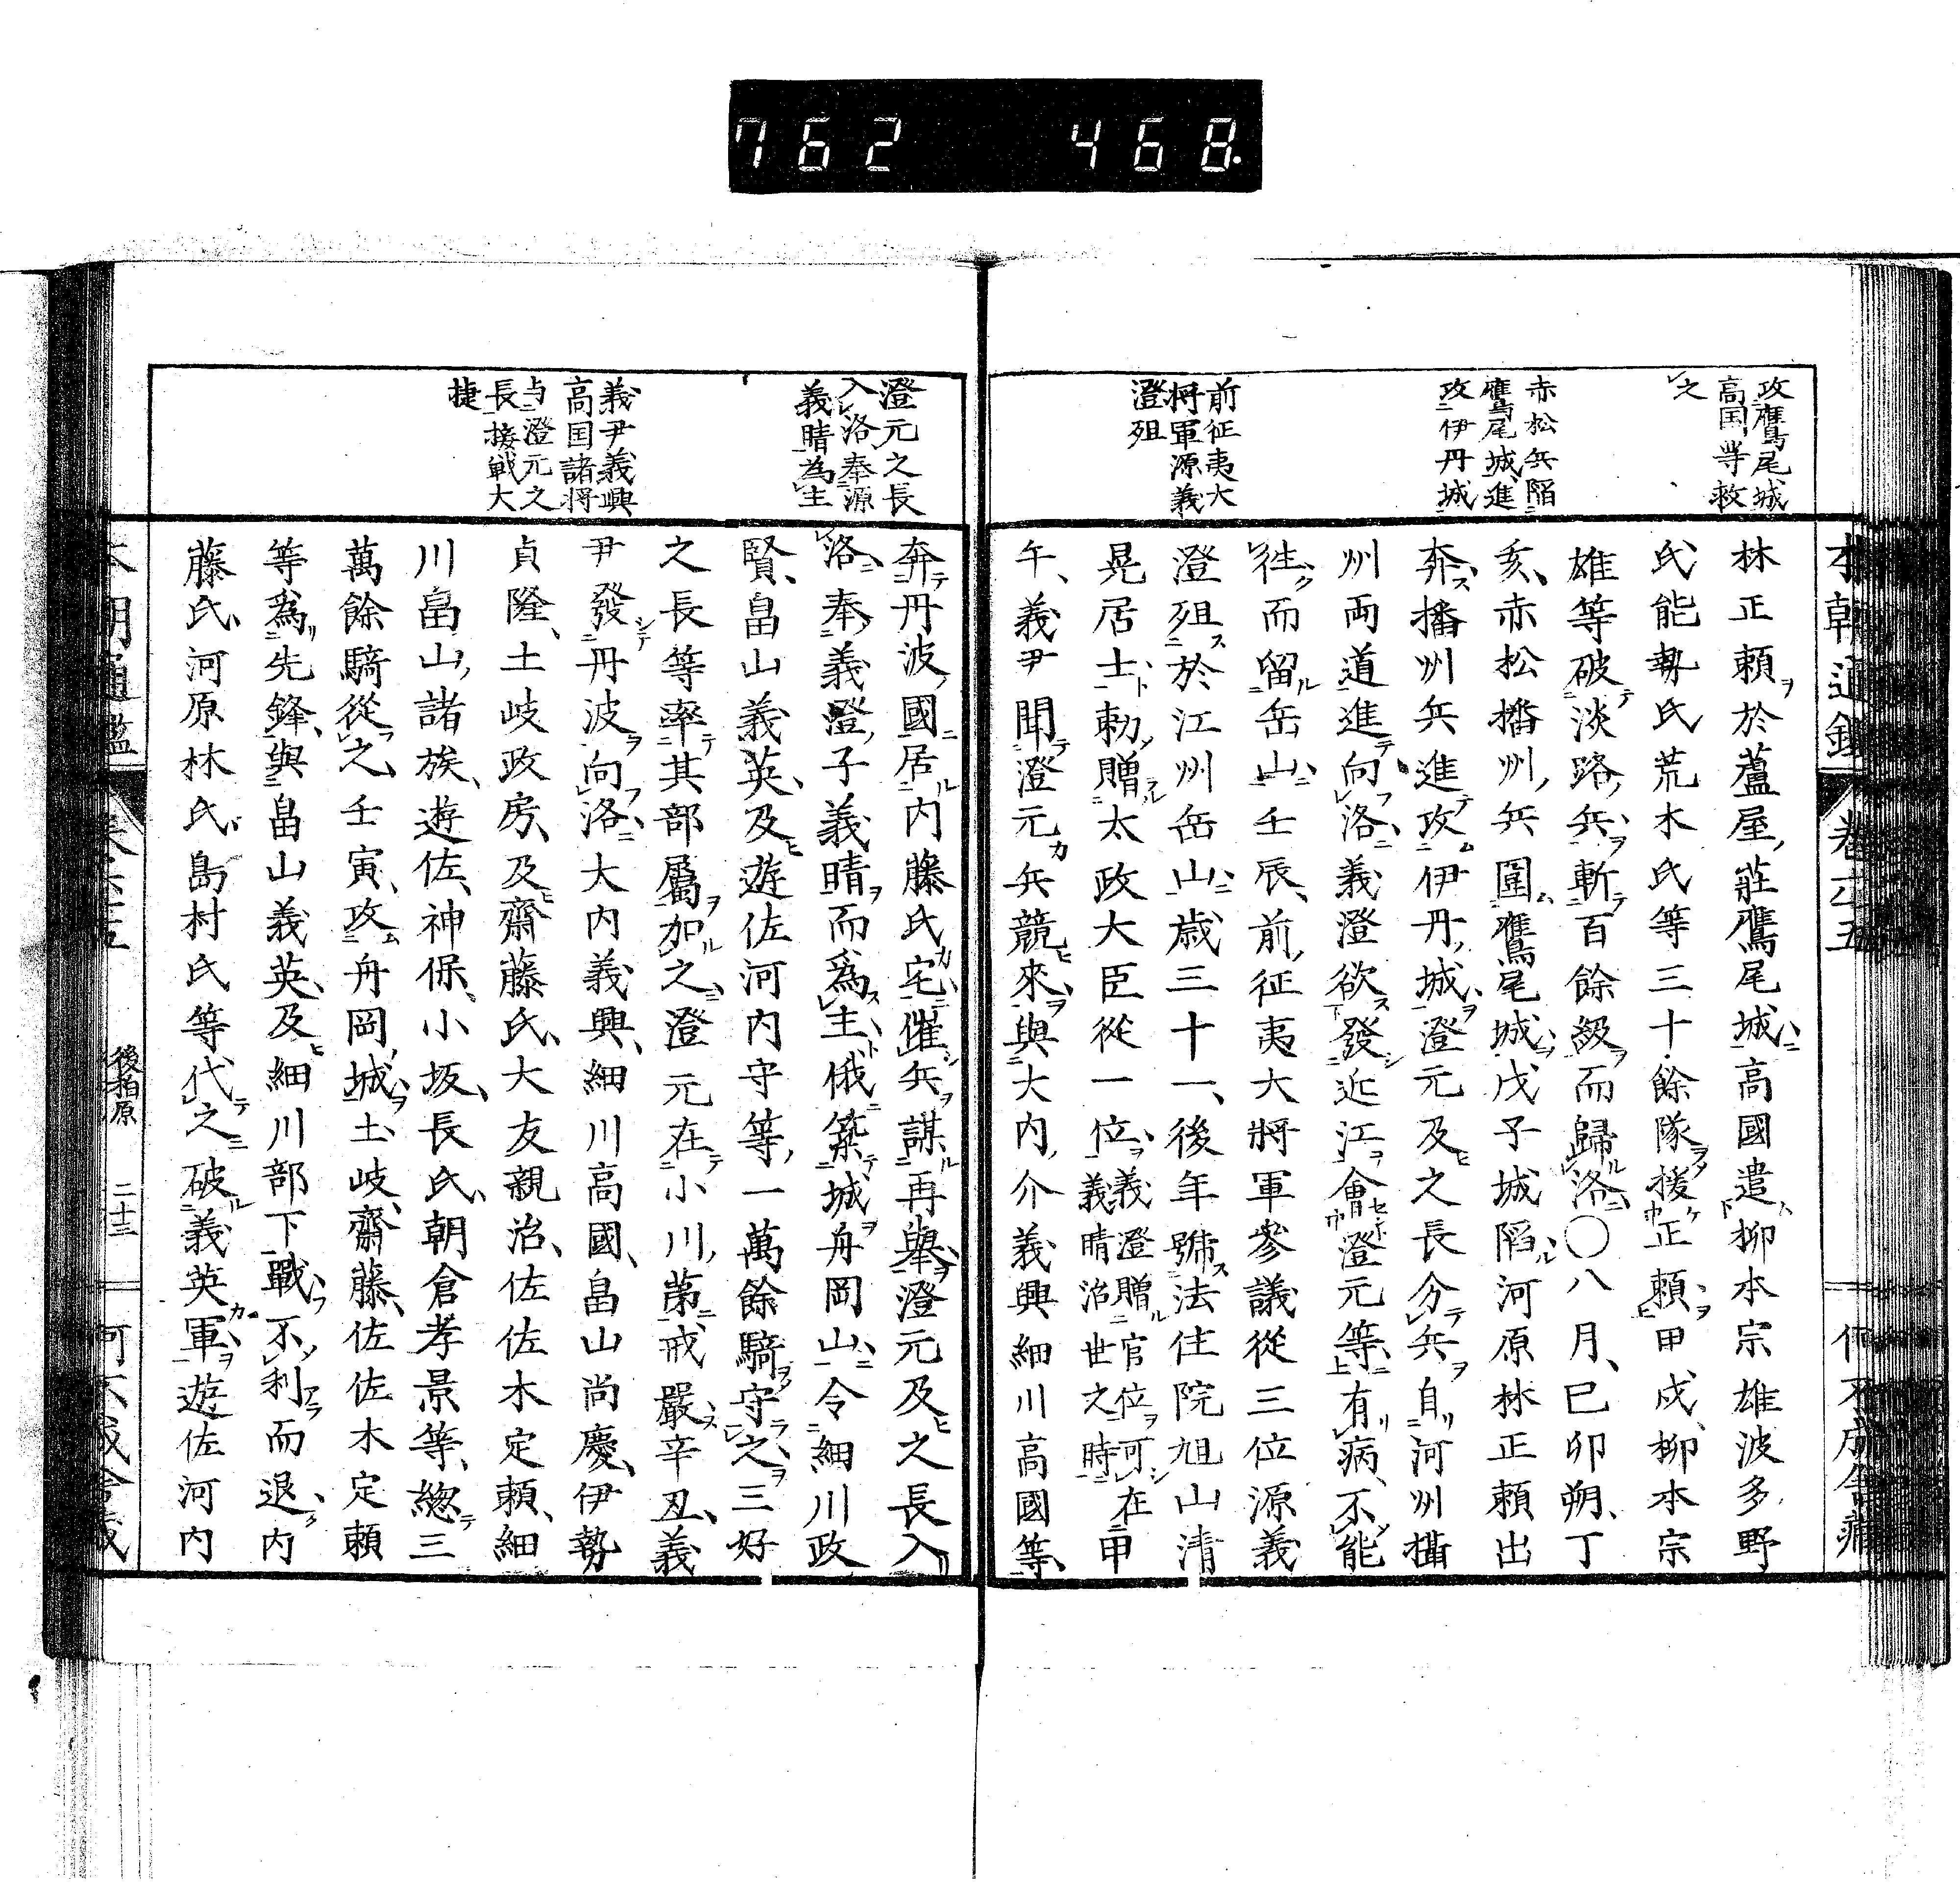 762 468.
攻鷹尾城
高国等救
之
赤松兵陷
鷹尾城進
攻伊丹城
前征夷大
將軍源義
澄殂
林正賴於蘆屋莊鷹尾城高國遣柳本宗雄波多野
氏能勢氏荒木氏等三十餘隊援正賴甲戌柳本宗
雄等破淡路兵斬百餘級而歸洛〇八月己卯朔丁
亥赤松播州兵圍鷹尾城戊子城陷河原林正賴出
奔播州兵進攻伊丹城澄元及之長分兵自河州攝
州両道進向洛義澄欲發近江會澄元等有病不能
往而留岳山壬辰前征夷大將軍參議從三位源義
澄殂於江州岳山歲三十一後年號法住院旭山清
晃居士勅贈太政大臣從一位義澄贈官位可在義晴治世之時甲
午義尹聞澄元兵競來與大内介義興細川高國等
澄元之長
入洛奉源
義晴為主
義尹義興
高国諸将
与澄元之
長接戦大
捷
奔丹波國居内藤氏宅催兵謀再舉澄元及之長入
洛奉義澄子義晴而爲主俄築城舟岡山令細川政
賢畠山義英及遊佐河内守等一萬餘騎守之三好
之長等率其部屬加之澄元在小川第戒嚴辛丑義
尹發丹波向洛大内義興細川高國畠山尚慶伊勢
貞隆土岐政房及齋藤氏大友親治佐佐木定賴細
川畠山諸族遊佐神保小坂長氏朝倉孝景等總三
萬餘騎從之壬寅攻舟岡城土岐齋藤佐佐木定賴
等爲先鋒與畠山義英及細川部下戰不利而退内
藤氏河原林氏島村氏等代之破義英軍遊佐河内
後柏原
二十三